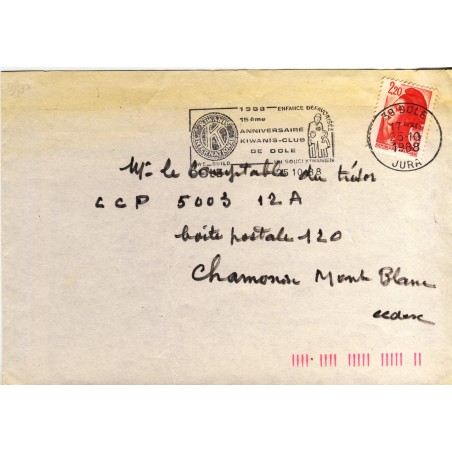 2,20
39 DOLE
17 H
5-10
1988
JURA
1988 ENFANCE DEFAVORISEE
15ème
ANNIVERSAIRE
KIWANIS-CLUB
DE DOLE
KIWANIS
INTERNATIONAL
WE BUILD
UN SOUCI KIWANIEN
15.10.88
Mr le Comptable du trésor
CCP 5003 12A
boîte postale 120
Chamonix Mont Blanc
cedex